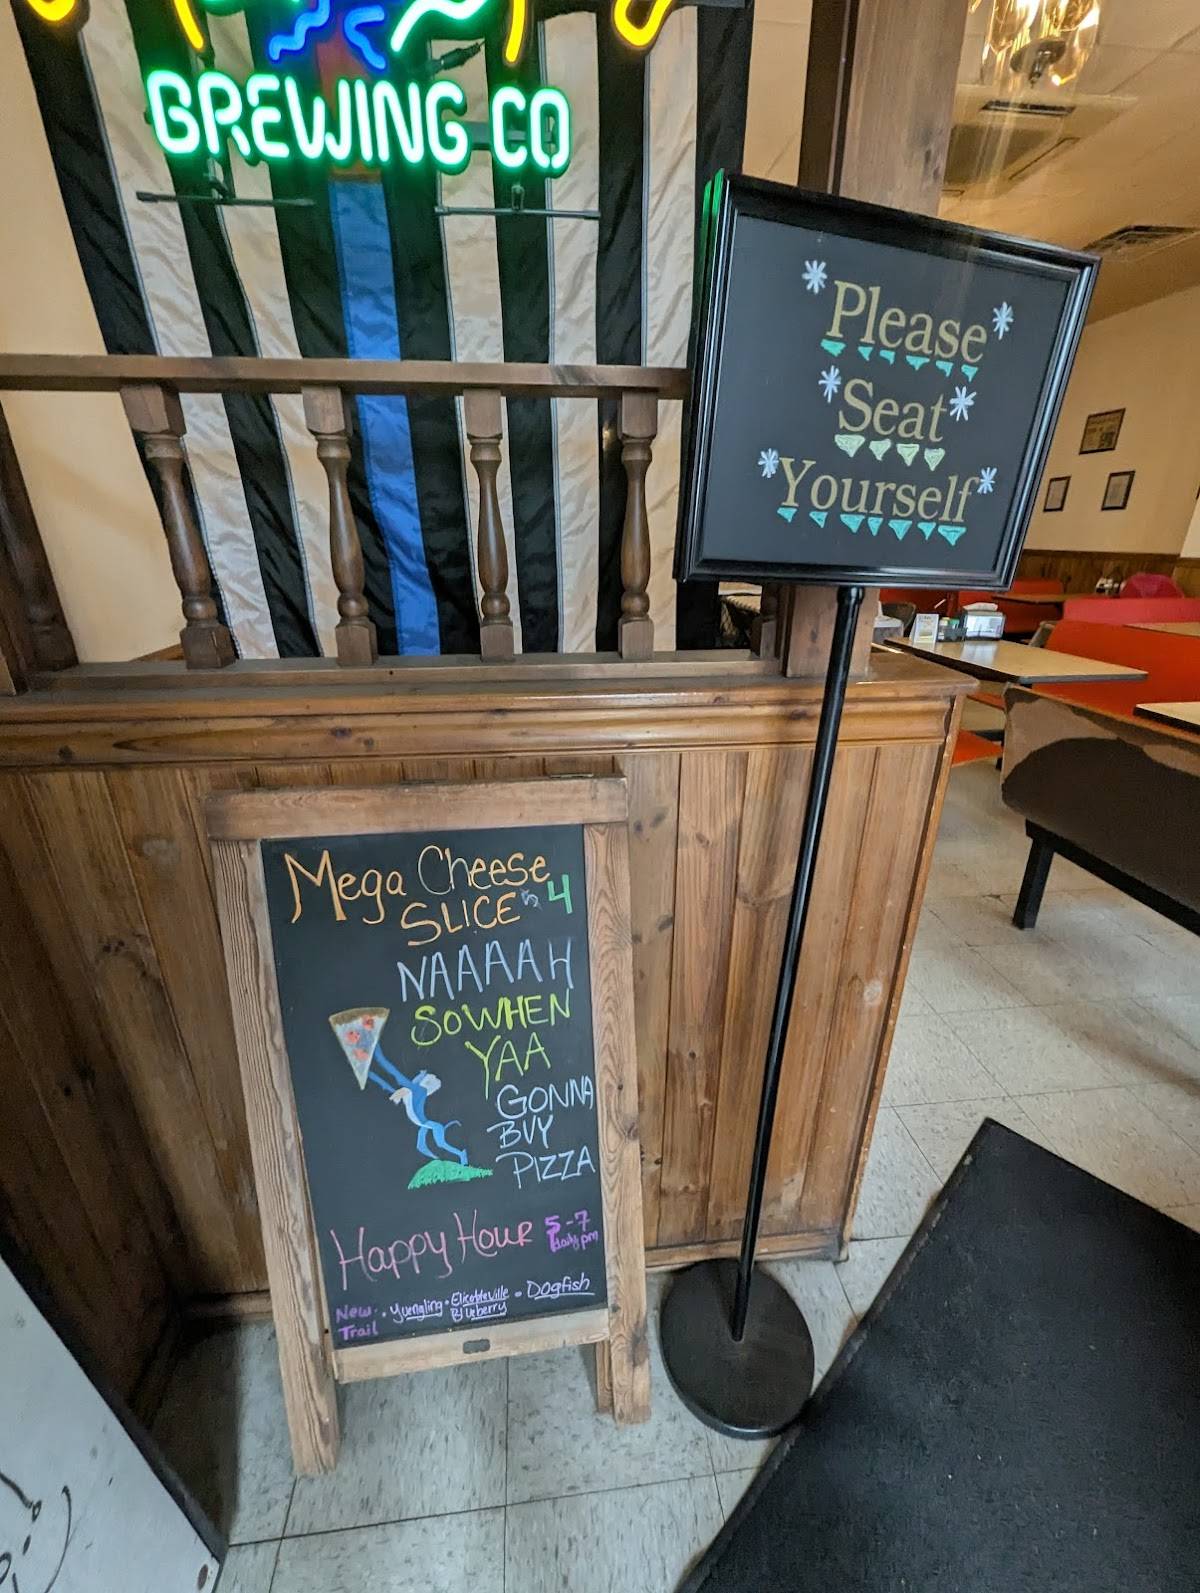 BREWING CO
Please
Seat
Yourself
Mega Cheese
SLICE 4
NAAAAH
SOWHEN
YAA
GONNA
BUY
PIZZA
Happy Hour 5-7
daily pm
New
Trail
• Yuengling • Elicottville
Blueberry
• Dogfish